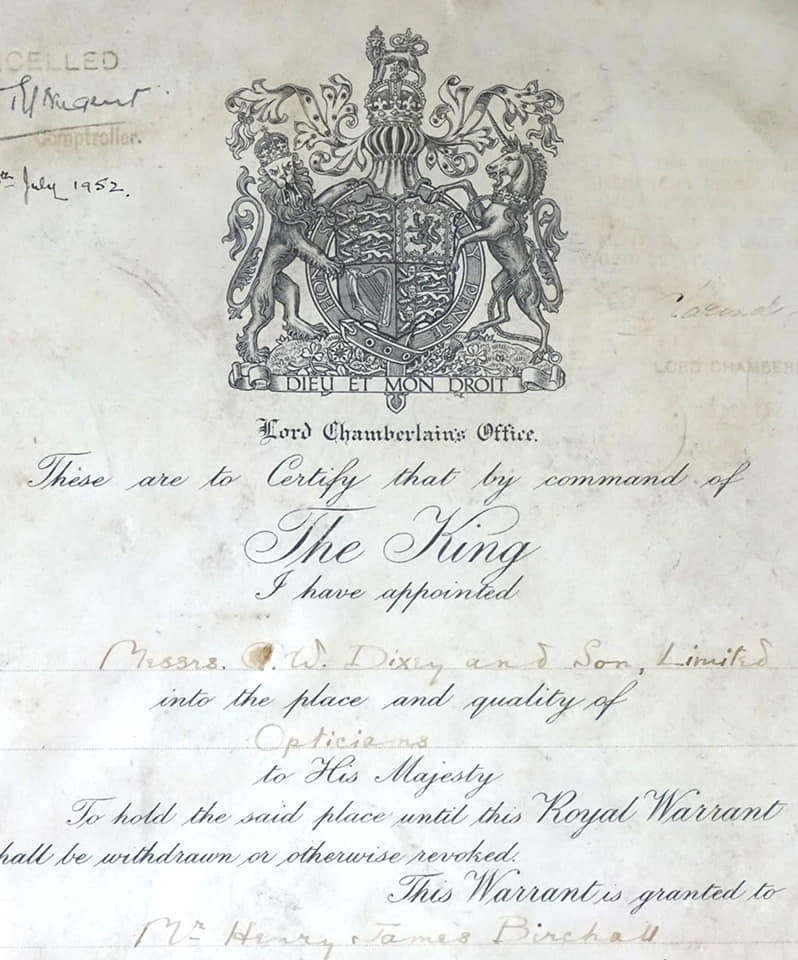 CELLED
TJ Nugent
Comptroller.
th July 1952.
LORD CHAMBER
HON
Y PENSE
DIEU ET MON DROIT
Lord Chamberlain's Office.
These are to Certify that by command of
The King
I have appointed
Messrs. C. W. Dixey and Son, Limited
into the place and quality of
Opticians
to His Majesty
To hold the said place until this Royal Warrant
hall be withdrawn or otherwise revoked.
This Warrant is granted to
Mr Henry James Birchall